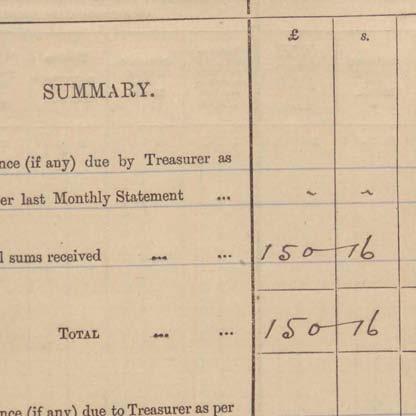 £ s.
SUMMARY.
nce (if any) due by Treasurer as
er last Monthly Statement ... ~ ~
l sums received ... ... 150 16
TOTAL ... ... 150 16
nce (if any) due to Treasurer as per